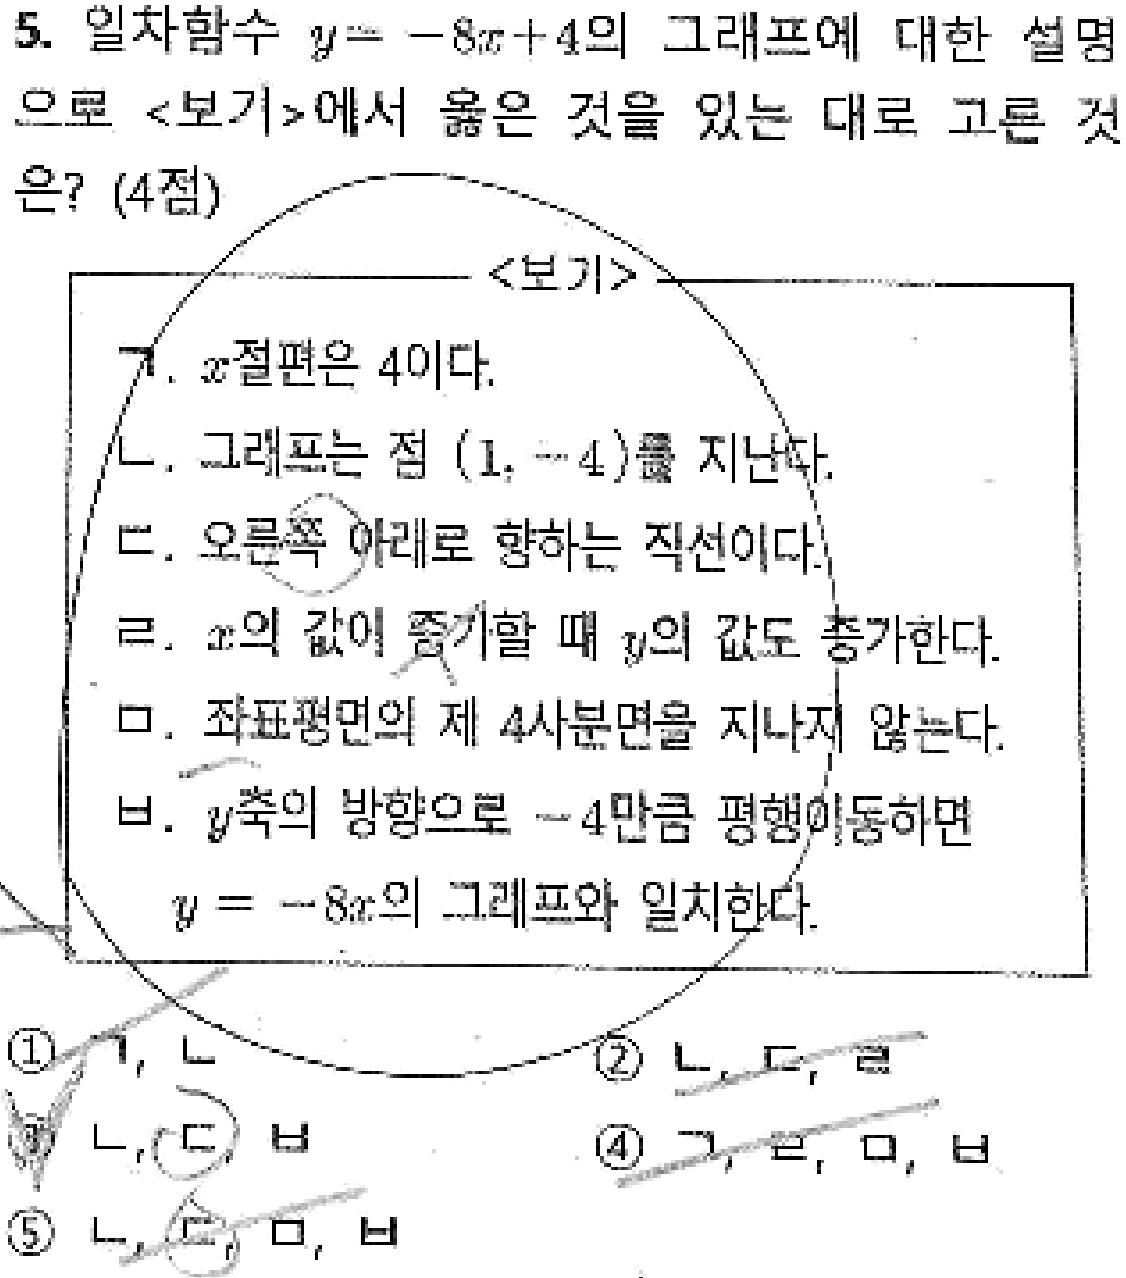 5. 일차함수 y = -8x+4의 그래프에 대한 설명
으로 <보기>에서 옳은 것을 있는 대로 고른 것
은? (4점)
<보기>
ㄱ. x절편은 4이다.
ㄴ. 그래프는 점 (1, -4)를 지난다.
ㄷ. 오른쪽 아래로 향하는 직선이다.
ㄹ. x의 값이 증가할 때 y의 값도 증가한다.
ㅁ. 좌표평면의 제 4사분면을 지나지 않는다.
ㅂ. y축의 방향으로 -4만큼 평행이동하면
y = -8x의 그래프와 일치한다.
① ㄱ, ㄴ ② ㄴ, ㄷ, ㄹ
③ ㄴ, ㄷ, ㅂ ④ ㄱ, ㄹ, ㅁ, ㅂ
⑤ ㄴ, ㄷ, ㅁ, ㅂ